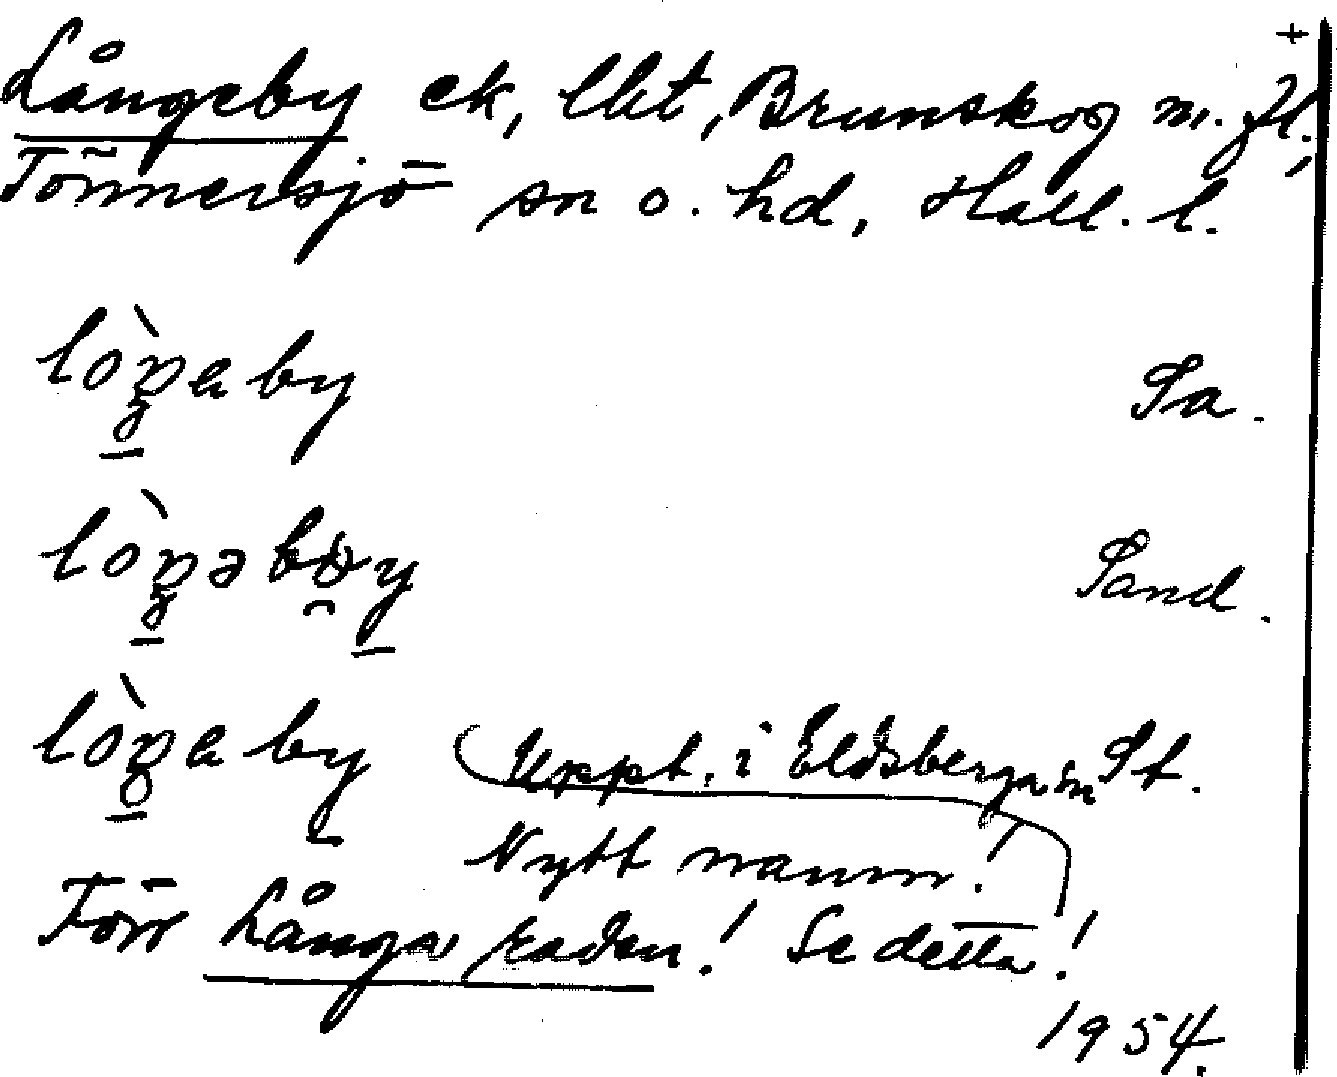 +
Långeby ek, lht, Brunskog m. fl.,
Tönnersjö sn o. hd, Hall. l.
lòŋaby Sa.
lòŋəbøy Sand.
lòŋaby (Uppt. i Eldsberga sn St.
Nytt namn!)
Förr Långa raden! Se detta!
1954.